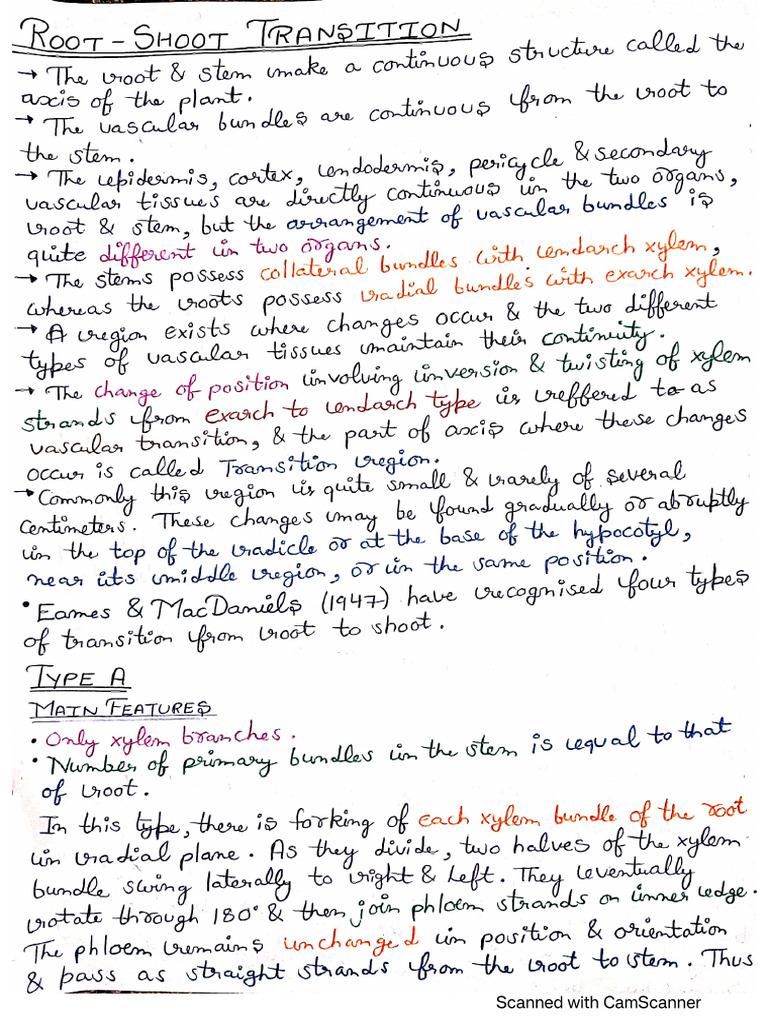 ROOT-SHOOT TRANSITION
→ The root & stem make a continuous structure called the
axis of the plant.
→ The vascular bundles are continuous from the root to
the stem.
→ The epidermis, cortex, endodermis, pericycle & secondary
vascular tissues are directly continuous in the two organs,
root & stem, but the arrangement of vascular bundles is
quite different in two organs.
→ The stems possess collateral bundles with endarch xylem,
whereas the roots possess radial bundles with exarch xylem.
→ A region exists where changes occur & the two different
types of vascular tissues maintain their continuity.
→ The change of position involving inversion & twisting of xylem
strands from exarch to endarch type is reffered to as
vascular transition, & the part of axis where these changes
occur is called Transition region.
→ Commonly this region is quite small & rarely of several
centimeters. These changes may be found gradually or abruptly
in the top of the radicle or at the base of the hypocotyl,
near its middle region, or in the same position.
• Eames & MacDaniels (1947) have recognised four types
of transition from root to shoot.
TYPE A
MAIN FEATURES
• Only xylem branches.
• Number of primary bundles in the stem is equal to that
of root.
In this type, there is forking of each xylem bundle of the root
in radial plane. As they divide, two halves of the xylem
bundle swing laterally to right & left. They eventually
rotate through 180° & then join phloem strands on inner edge.
The phloem remains unchanged in position & orientation
& pass as straight strands from the root to stem. Thus
Scanned with CamScanner